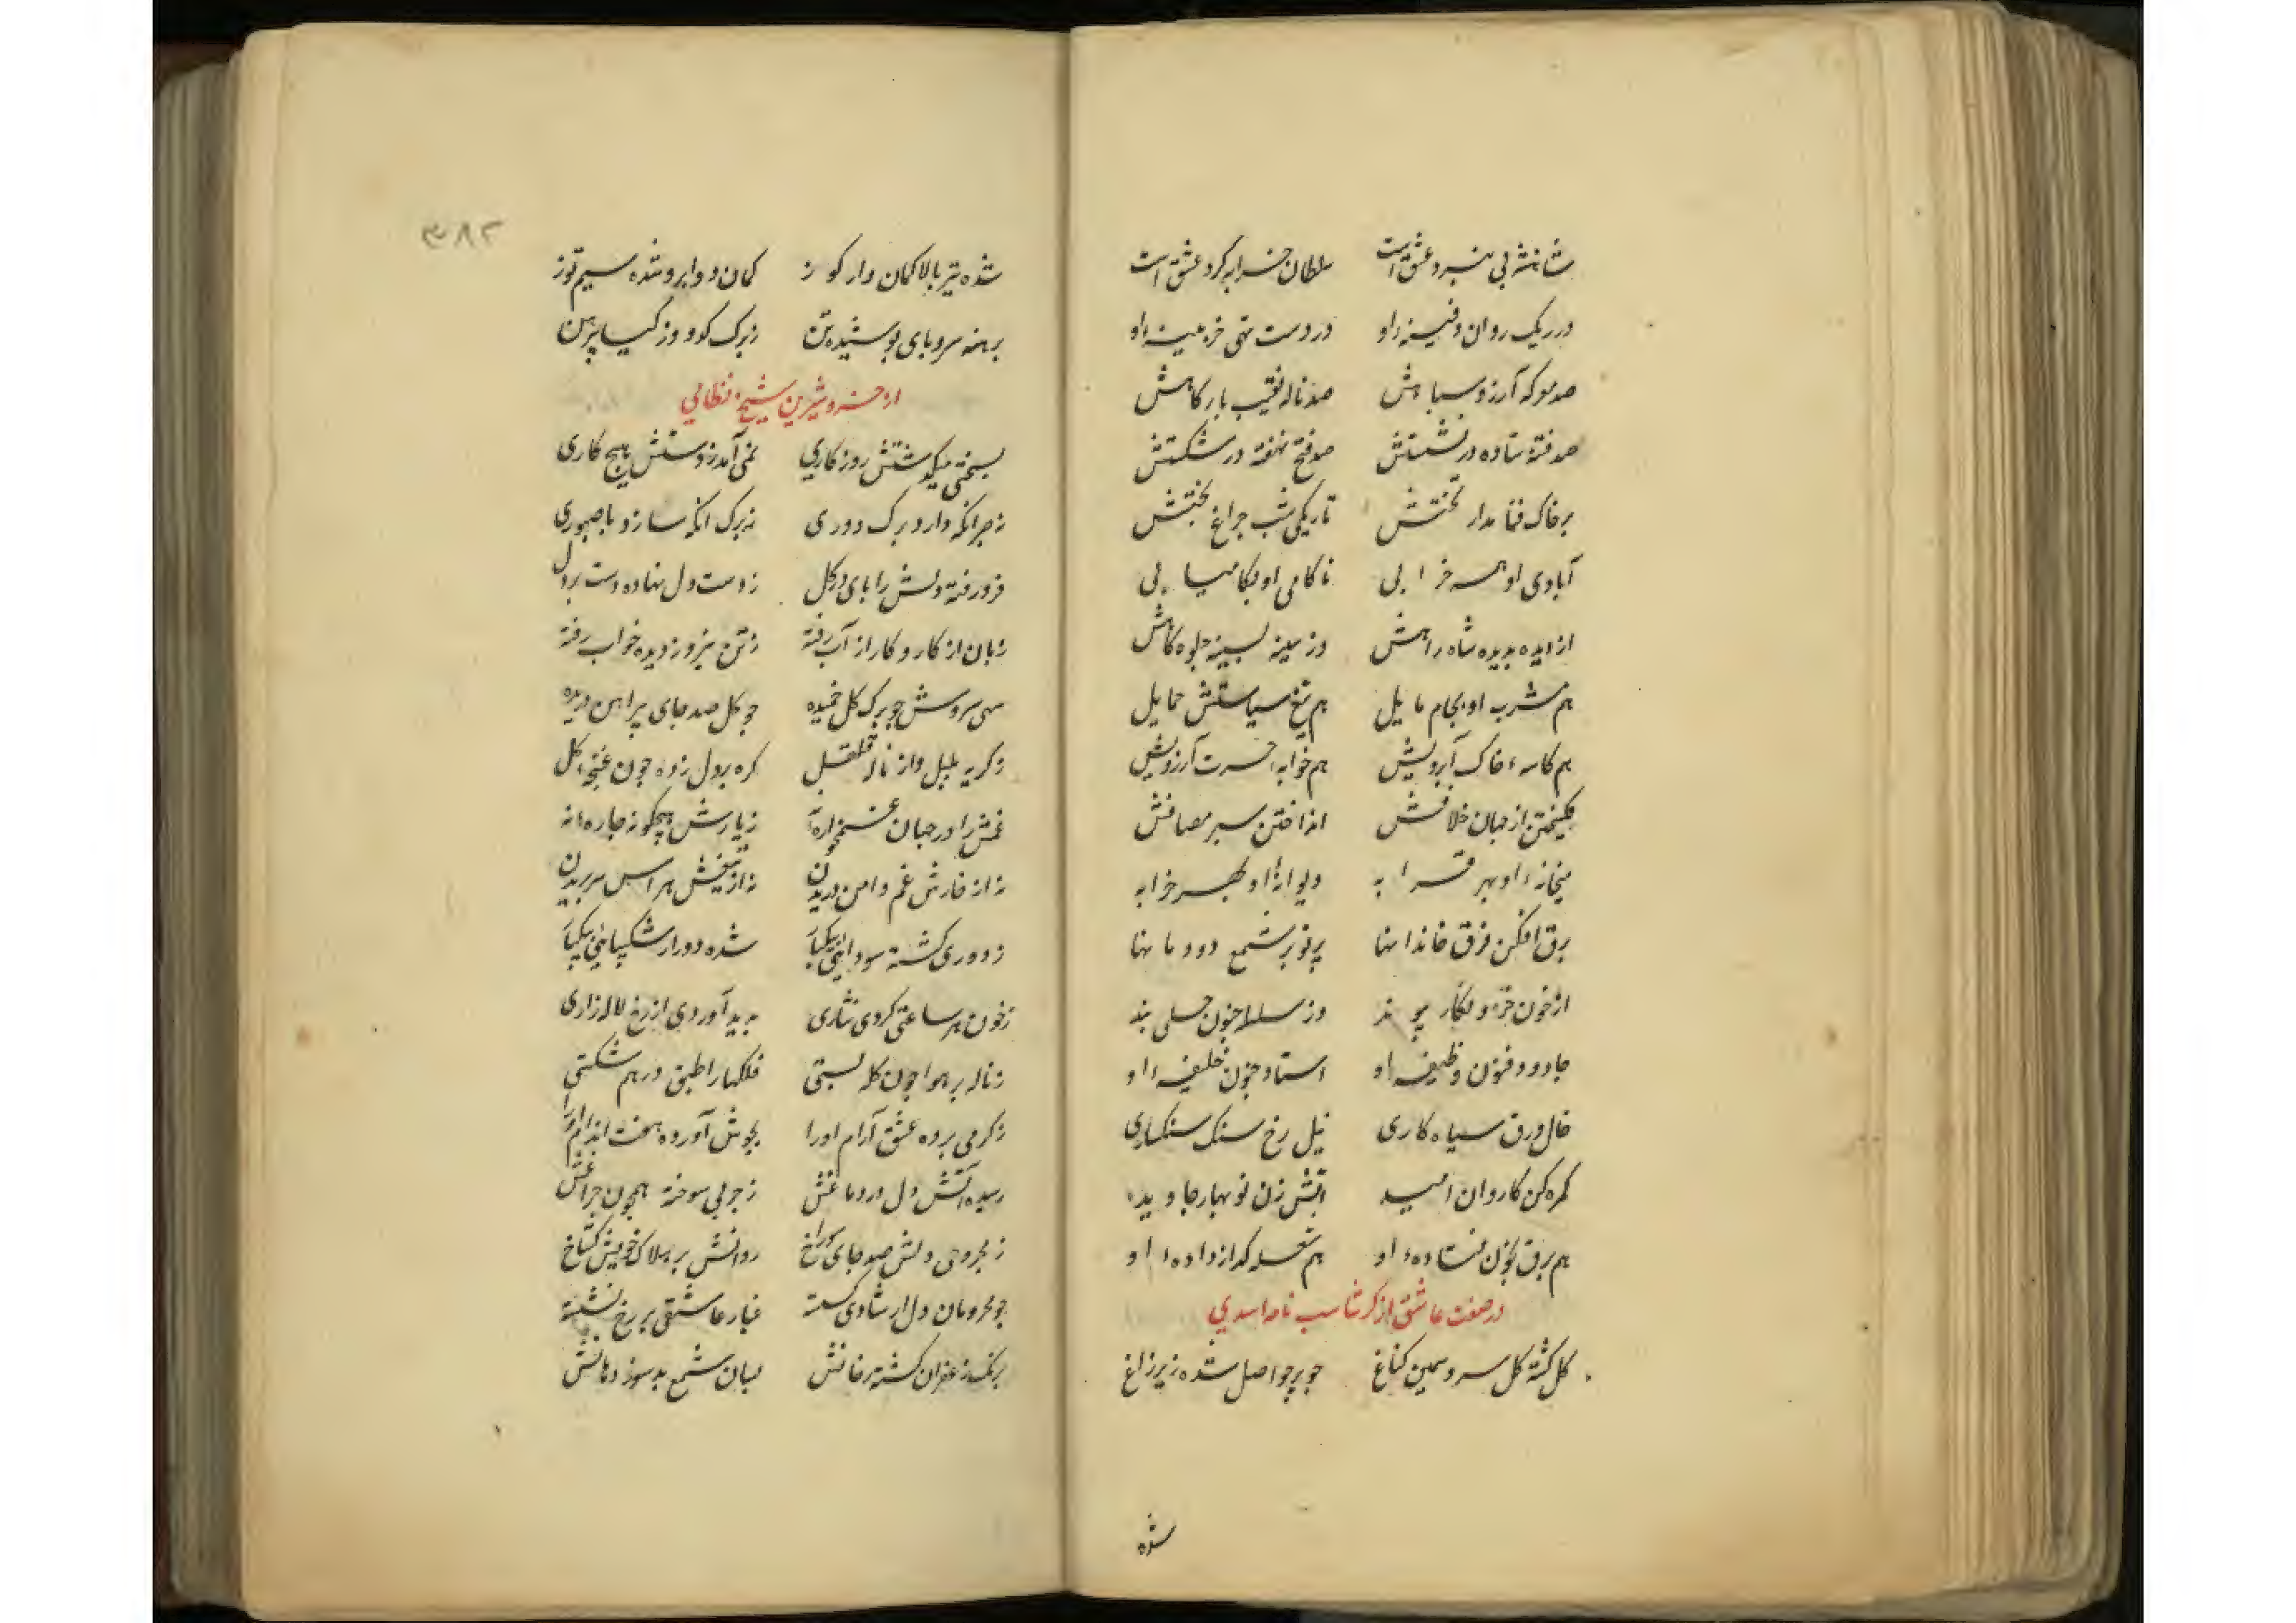 شاهنشه بی خبر و عشق است سلطان خرابه کرد عشق است
در ریک روان دفینهٔ او در دست تهی خزینهٔ او
صد موکه آرزو سپاهش صد ناله نقیب بارکاهش
صد فتنه ستاده در نشستش صد فتح نهفته در شکستش
بر خاک فنا مدار تختش تاریکی شب چراغ بختش
آبادی او همه خرابی ناکامی او بکامیابی
از دیده بدیده شاه راهش وز سینه بسینه جلوه کاهش
هم مشرب او بجام مایل هم تیغ سیاستش حمایل
هم کاسهٔ خاک آبرویش هم خوابهٔ حسرت آرزویش
از جهان خلافش انداختن سپر مصافش
میخانهٔ او بهر قرابه دیوانهٔ او بهر خرابه
برق افکن فرق خاندانها پرتو بر شمع دودمانها
از خون وز سلسلهٔ جنون بند
جادو و فنون وظیفهٔ او استاد جنون خلیفهٔ او
خال ورق سیاه کاری نیل رخ سنک سنکساری
کمره کن کاروان امید آتش زن نوبهار جاوید
هم برق بخون نشاندهٔ او هم شعله کداز دادهٔ او
در صفت عاشق از کرشاسب نامه اسدی
کل کشته کل سرو سیمین کناغ چو پر حواصل شده زیر زاغ
شده
۳۸۲
شده تیر بالا کمان وار کوز کمان دو ابرو شده سیم توز
برهنه سر و پای پوشیده تن ز برک کدو وز کیا پیرهن
از خسرو شیرین شیخ نظامی
بسختی میکذشتش روزکاری نمی آمد ز دستش هیچ کاری
نه صبر آنکه دارد برک دوری نه برک آنکه سازد با صبوری
فرو رفته دلش را پای در کل ز دست دل نهاده دست بر دل
زبان از کار و کار از آب رفته ز تن نیرو ز دیده خواب رفته
سهی سروش چو برک کل خمیده چو کل صد جای پیراهن دریده
ز کریه بلبل و از ناله قلقل کره بر دل زده چون غنچهٔ کل
غمش را در جهان غمخواره نه ز یارش هیچکونه چاره نه
نه از خارش غم دامن دریدن نه از تیغش هراس سر بریدن
ز دوری کشته سودایی بیکبار شده دور از شکیبایی بیکبار
ز خون هر ساعتی کردی نثاری پدید آوردی از رخ لاله زاری
ز ناله بر هوا چون کله بستی فلکها را طبق در هم شکستی
ز کرمی برده عشق آرام او را بجوش آورده هفت اندام او را
رسیده آتش دل در دماغش ز چربی سوخته همچون چراغش
ز مجروحی دلش صد جای سوراخ روانش بر هلاک خویش کستاخ
چو محرومان دل از شادی کسسته غبار عاشقی بر رخ نشسته
برنک زعفران کشته رخانش بسان شمع بد سوز دهانش